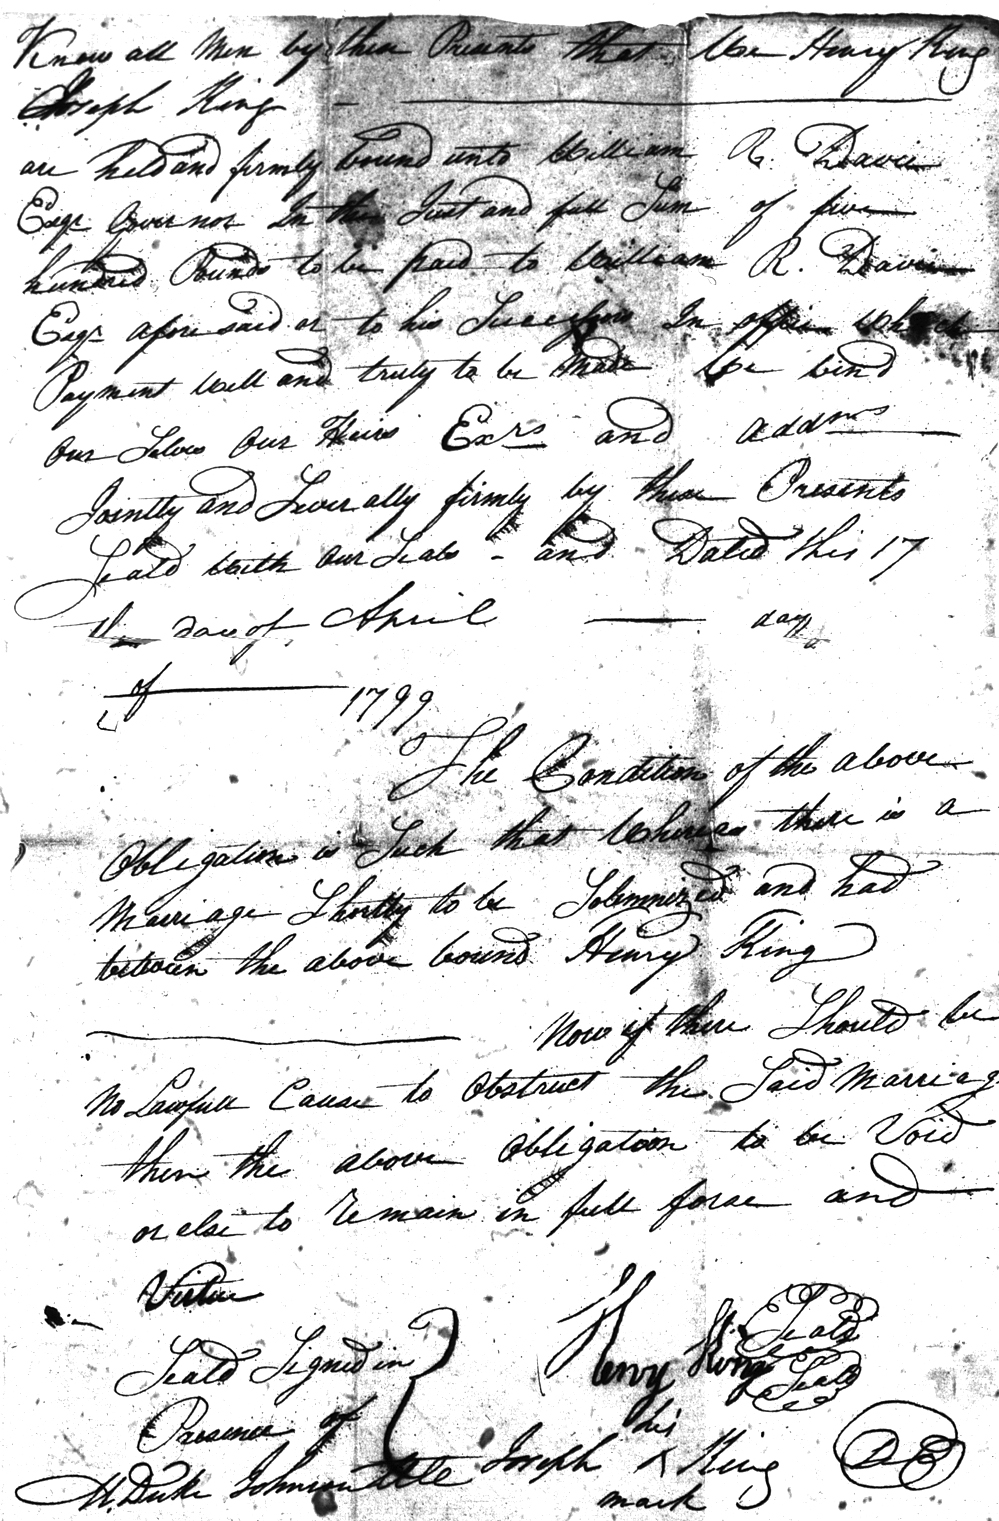 Know all Men by these Presents that We Henry King
Joseph King
are held and firmly bound unto William R. Davie
Esqr Governor In the Just and full Sum of five
hundred Pounds to be paid to William R. Davie
Esqr afore said or to his Successors In office Which
Payment Well and truly to be Made We bind
Our Selves Our Heirs Exrs and addmrs
Jointly and Severally firmly by these Presents
Seald with Our Seals - and Dated this 17
th day of April day
of 1799
The Condition of the above
Obligation is Such that Whereas there is a
Marriage Shortly to be Solemnized and had
between the above bound Henry King
Now if there Should be
No Lawfull Cause to Obstruct the Said Marriage
then the above Obligation to be Void
or else to remain in full force and
Virtue
Seald Signed in
Presence of
Henry King Seald
Seald
his
Joseph King
mark
H. Duke Johnson
DB